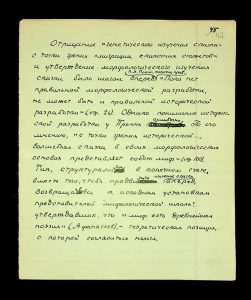 45
Отрицание "генетического изучения сказки
с точки зрения "миграции сказочных сюжетов"
и утверждение морфологического изучения
сказки было шагом вперёд: "Пока нет
правильной морфологической разработки,
не может быть и правильной исторической
разработки" (стр. 24). Однако понимание историче-
ской разработки у Проппа
мнению, "с точки зрения исторической
волшебная сказка в своих морфологических
основах представляет собою миф" (стр.
Так, структурализм в конечном счёте,
вместо того, чтобы
возвращается к исходным установкам
представителей мифологической школы,
утверждавших, что "миф есть древнейшая
поэзия" (Афанасьев), - теоретическая позиция,
с которой согласиться нельзя.